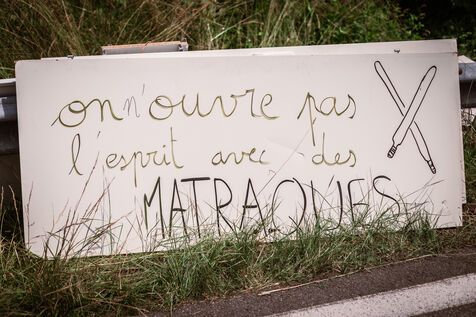 on n'ouvre pas
l'esprit avec des
MATRAQUES